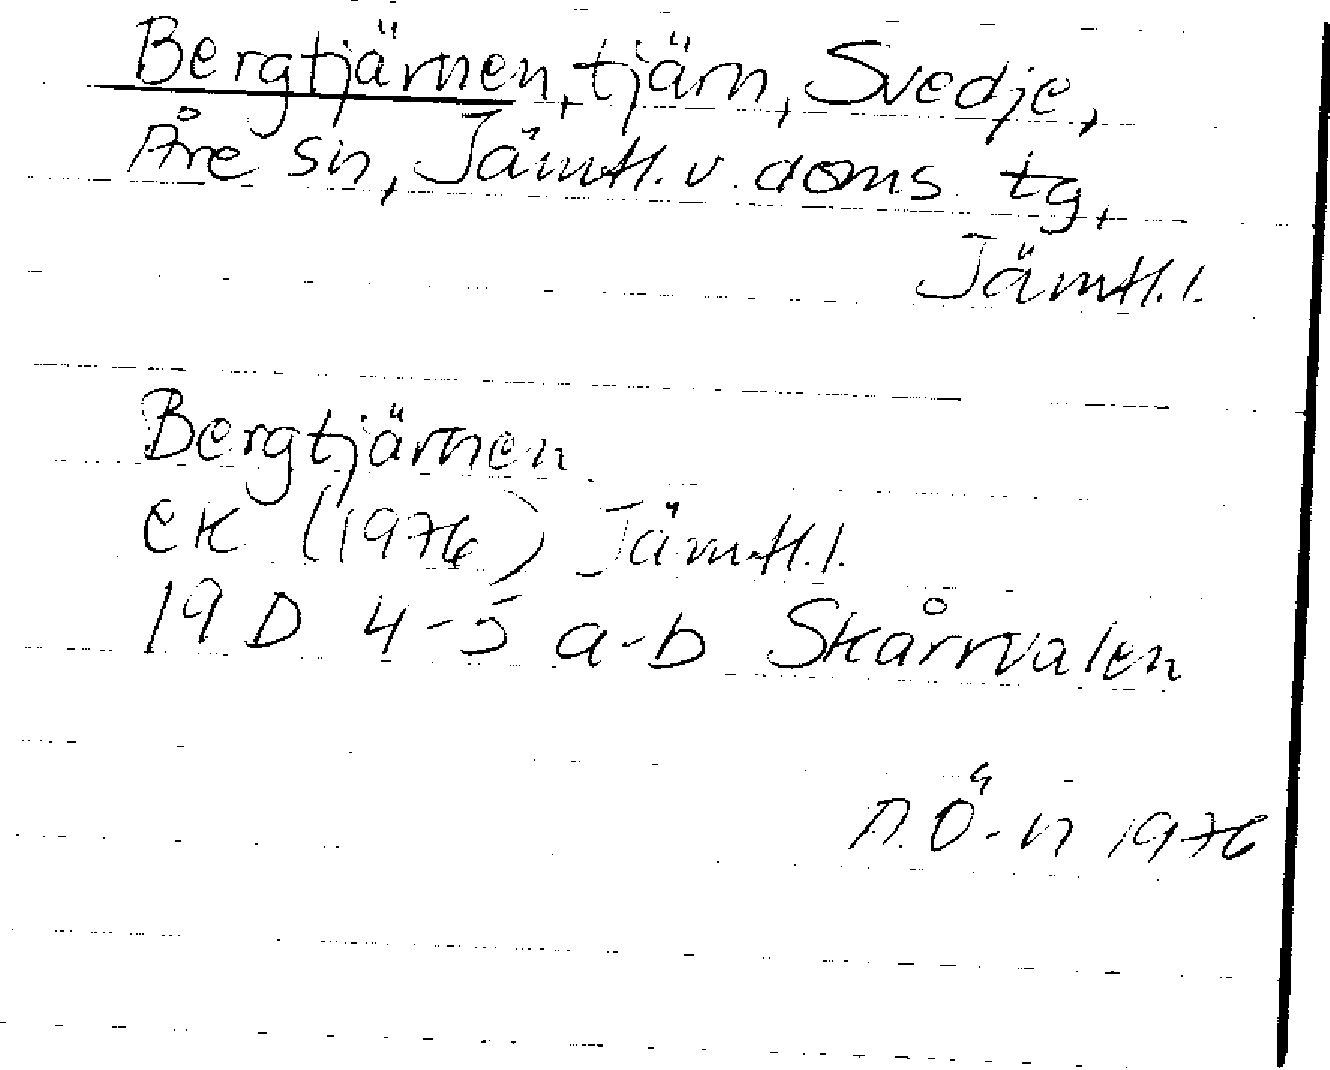 Bergtjärnen, tjärn, Svedje,
Åre sn, Jämtl. v. doms. tg,
Jämtl. l.
Bergtjärnen
ek (1976) Jämtl. l.
19 D 4-5 a-b Skårvalen
A. Ö-n 1976